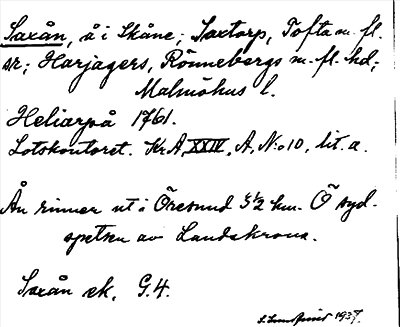 Saxån, å i Skåne; Saxtorp, Tofta m. fl.
sr; Harjagers, Rönnebergs m. fl. hd;
Malmöhus l.
Heliarpå 1761.
Lotskontoret. Kr A, XXIV, A, N:o 10, lit. a.
Ån rinner ut i Öresund 3½ km. Ö syd-
spetsen av Landskrona.
Saxån ek. G.4.
1937.